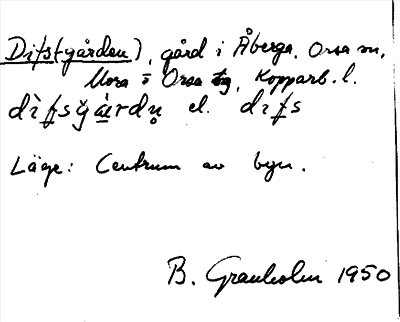 Difs(gården), gård i Åberga, Orsa sn,
Mora o Orsa tg, Kopparb. l.
dìfsg̀årdṇ el. dɪfs
Läge: Centrum av byn.
B. Granholm 1950